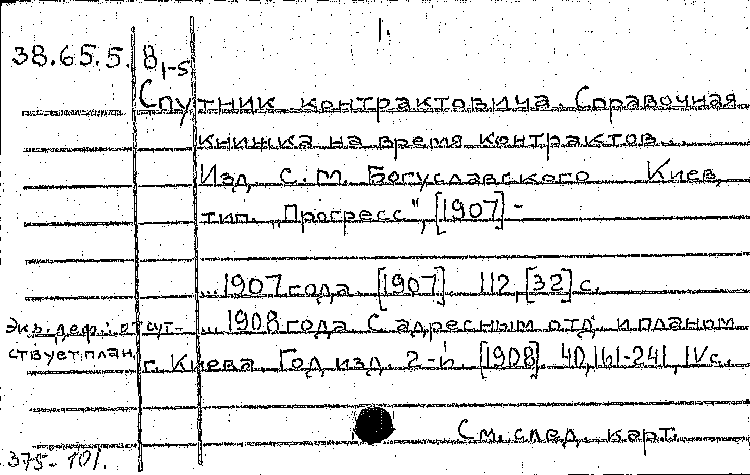 1.
38.65.5. 8 1-5
Спутник контрактовича. Справочная
книжка на время контрактов...
Изд. С.М. Богуславского. Киев,
тип. „Прогресс", [1907] -
...1907 года. [1907]. 112, [32] с.
Экз. деф.: отсут- ...1908 года. С адресным отд. и планом
ствует план. г. Киева. Год изд. 2-й. [1908]. 40, 161-241, IV с.
См. след. карт.
375-101.